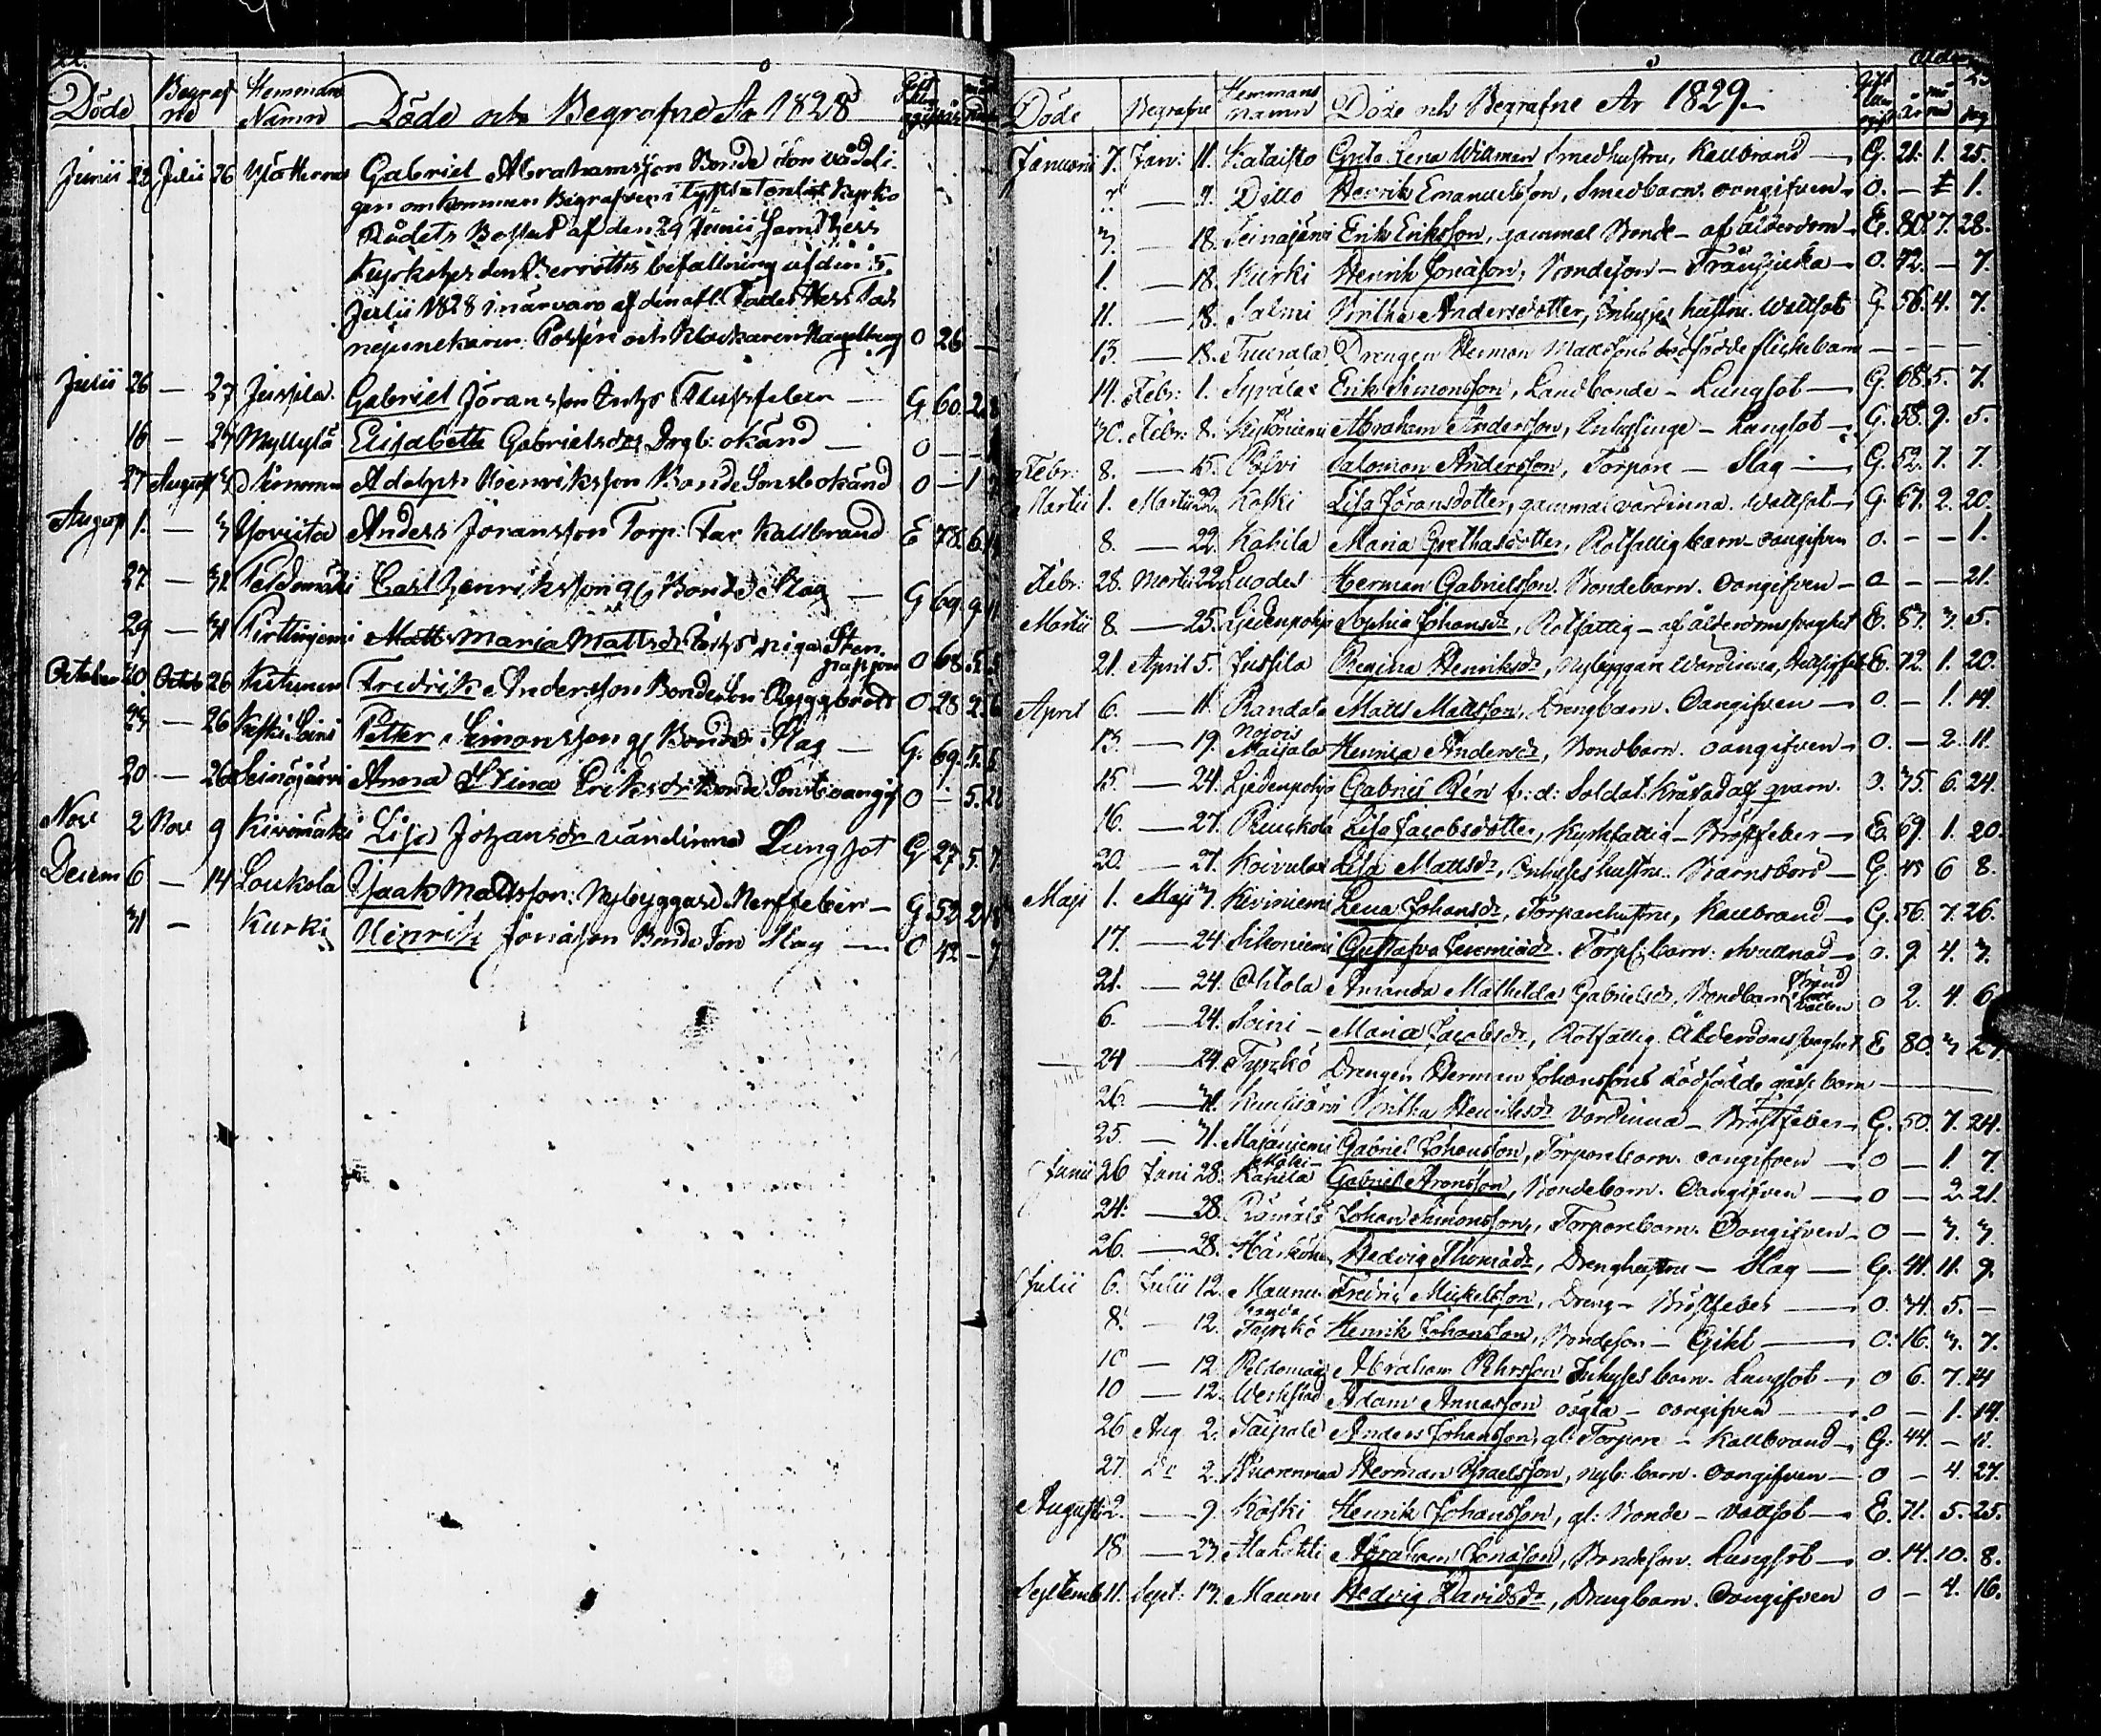 22.
Döde Begraf ne Hemmans Namn Döde och Begrafne År 1828
Junii 22 Julii 26 Gabriel Abrahamsson Bonde Son vådeli-
gen omkommen Begrafven i tysthet enligt Kyrko
Rådets Beslut af den 29 Junii samt Hess
befallning af den 5.
Julii 1828 i närvaro af
och Klockaren O 26 —
Julii 26 — 27 Jussila. Gabriel Jöransson G 60. 2. 8
16 — 27 Myllylä Elisabeth Gabrielsdr Drgb: okänd — O —
27 August 3 Adolph Hoenriksson Bonde Sons b okänd O — 1
August 1. — 3 Anders Jöransson Torp: Far Kallbrand E 78. 6.
27 — 31. Peldomäki Carl Henriksson gl Bonde Slag — G 69. 9.
29 — 31 Maria Mattsdr Inhys piga Sten
passion O 68. 5. 5
October 20. Octob 26 Kutunen Fredrik Andersson Bondeson Ryggbrott O 28 2. 6
23 — 26 Koski Soini Petter Simonsson gl Bonde Slag — G. 69. 5. 5
20 — 26 Seinäjärvi Anna Stina Eriksdr Bonde Sonsb oangif O — 5. 21
Nov 2 Nov 9 Kivimäki Lisa Johansdr värdinna Lungsot G 27. 5. 7
Decem 6 — 14 Loukola Isaak Mattsson: Nybyggare Nerffeber — G. 52 2. 18
31 — Kurki Henrik Jonasson Bonde Son Slag — O 42 — 7
Ålder 23
Döde Begrafne Hemmans namn Döde och Begrafne År 1829.
Januarii 7. Jan: 11. Kataisto Greta Lena Willman Smedhustru, Kallbrand — G. 21. 1. 25.
Ditto Henrik Emanuelsson, Smedbarn. oangifven — O. — 1.
3. — 18. Seinäjärvi Erik Eriksson, gammal Bonde — af ålderdom — E. 80. 7. 28.
1. — 18. Kurki Henrik Jonasson, Bondeson — Fransjuka — O. 42. — 7.
11. — 18. Salmi Britha Andersdotter, Inhyses hustru. Wattsot G. 56. 4. 7.
13. — 18. Drengen Herman Mattsons dödfödde flickebarn — — —
14. Febr: 1. Syrälä Erik Simonsson, Landbonde — Lungsot — G. 68. 5. 7.
30. Febr: 8. Abraham Andersson, Inhysinge — Lungsot — G. 58. 9. 5.
Febr: 8. — 15. Salomon Andersson, Torpare — Slag — G. 52. 7. 7.
Martii 1. Martii 22. Koski Lisa Jöransdotter, gammal värdinna. Wattsot — G. 67. 2. 20.
8. — 22. Kahila Maria Grethasdotter, Rotfattig barn — oangifven O. — — 1.
Febr: 28. Martii 22. Luodes Herman Gabrielsson. Bondebarn. Oangifven — O — — 21.
Martii 8. — 25. Ljedenpohja Sophia Johansdr, Rotfattig — af ålderdomsswaghet E. 83. 3. 5.
21. April 5. Jussila Regina Henriksdr, nybyggar wärdinna, E. 72. 1. 20.
April 6. — 11. Randala Matts Mattsson, Drengbarn. Oangifven — O. — 1. 14.
13. — 19. Maijala Henrica Andersdr, Bondbarn. oangifven — O. — 2. 11.
15. — 24. Ljedenpohja Gabriel Rén f: d: Soldat. krossad af qvarn. O. 35. 6. 24.
16. — 27. Ruuskola Lisa Jacobsdotter, Kyrkfattig — Bröstfeber — E. 69. 1. 20.
20. — 27. Koivula Lisa Mattsdr, Inhyseshustru. Barnsbörd — G. 45 6 8.
Maji 1. Maji 3. Kiviniemi Lena Johansdr, Torparehustru, Kallbrand — G. 56. 7. 26.
17. — 24. Sikoniemi Gustafva Jeremiasdr. Torp: barn: Svullnad — O. 9. 4. 3.
21. — 24. Ohtola Amanda Mathilda Gabrielsdr, Bondbarn Bränd vatten O 2. 4. 6
6. — 24. Soini — Maria Jacobsdr, Rotfattig. Ålderdomsswaghet E 80. 3
24 — 24. Tyrkkö Drengen Herman Johanssons dödfödde gåsse barn —
26. — 31. Britha Henriksdr Värdinna — Bröstfeber — G. 50. 7. 24.
25. — 31. Majaniemi Gabriel Johansson, Torparebarn. oangifven — O — 1. 7.
Junii 26 Juni 28. Mäki- Kahila Gabriel Aronsson, Bondebarn. Oangifven — O — 2. 21.
24: — 28. Rämälä Johan Simonsson, Torparebarn. Oangifven — O — 3. 3.
26. — 28. Härkönen Hedvig Thomasdr, Dränghustru — Slag — G. 41. 11. 9.
Julii 6. Julii 12. Maunu Fredric Mickelsson, Dreng — Bröstfeber — O. 34. 5. —
8. — 12. Tyrkkö Henrik Johansson, Bondeson — Gikt — O. 16. 3. 7.
10 — 12. Peldomäki Abraham Pehrsson Inhyses barn. Lungsot — O 6. 7. 14
10 — 12. Werkstad Adam Annasson oägta — oangifven — O — 1. 14.
26 Aug 2. Taipale Anders Johansson, gl: Torpare — Kallbrand — G. 44. — 11.
27. Do 2. Wuorenmaa Herman Israelsson, nyb: barn. Oangifven — O — 4. 27.
Augusti 2. — 9. Koski Henrik Johansson, gl: Bonde — Vattsot — E. 71. 5. 25.
18. — 23. Mahlatti Abraham Jonasson, Bondeson. Lungsot — O. 14. 10. 8.
Septemb 11. Sept: 13. Maunu Hedvig Davidsdr, Drengbarn. Oangifven O — 4. 16.